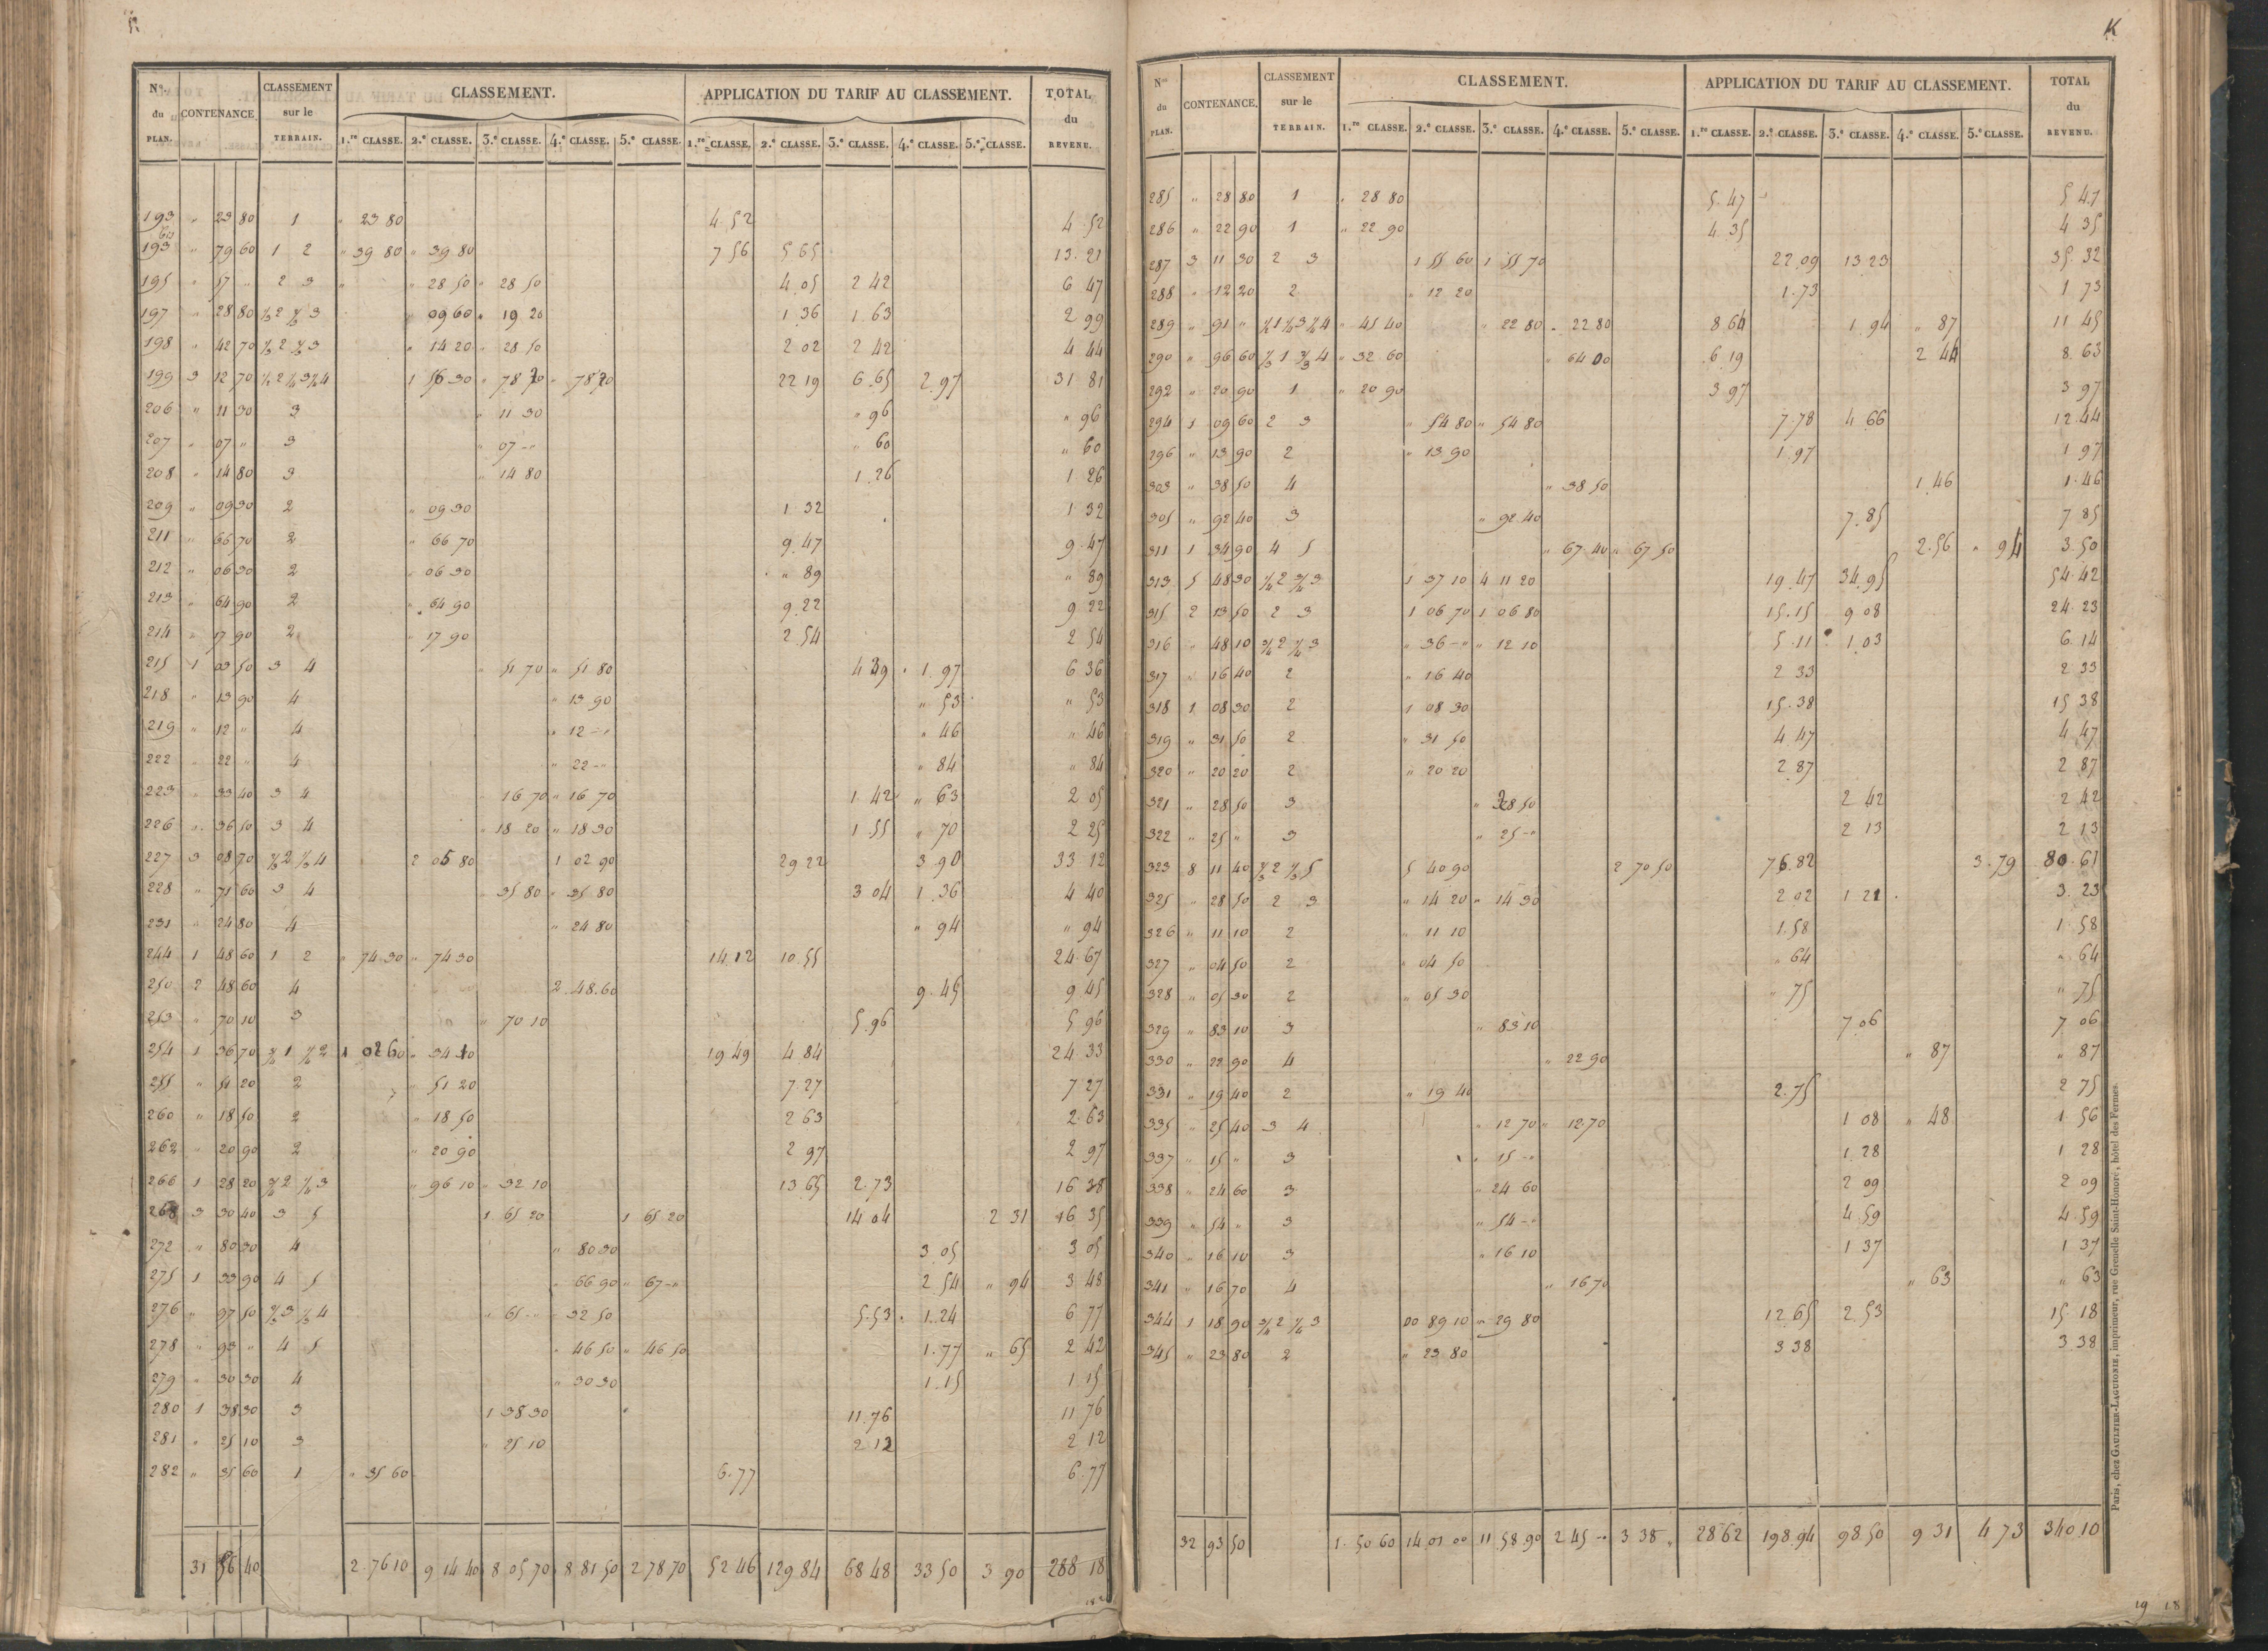 N.os du PLAN. CONTENANCE. CLASSEMENT sur le TERRAIN. CLASSEMENT. APPLICATION DU TARIF AU CLASSEMENT. TOTAL du REVENU.
1.re CLASSE. 2.e CLASSE. 3.e CLASSE. 4.e CLASSE. 5.e CLASSE. 1.re CLASSE. 2.e CLASSE. 3.e CLASSE. 4.e CLASSE. 5.e CLASSE.
193 " 23 80 1 " 23 80 4 52 4 52
193 bis " 79 60 1 2 " 39 80 " 39 80 7 56 5 65 13 21
195 " 57 " 2 3 " " 28 50 " 28 50 4 05 2 42 6 47
197 " 28 80 1/3 2 2/3 3 " 09 60 " 19 20 1 36 1 63 2 99
198 " 42 70 1/3 2 2/3 3 " 14 20 " 28 50 2 02 2 42 4 44
199 3 12 70 1/2 2 1/4 3 1/4 4 1 56 30 " 78 20 " 78 20 22 19 6 65 2 97 31 81
206 " 11 30 3 " 11 30 " 96 " 96
207 " 07 " 3 " 07 -" " 60 " 60
208 " 14 80 3 " 14 80 1 26 1 26
209 " 09 30 2 " 09 30 1 32 1 32
211 " 66 70 2 " 66 70 9 47 9 47
212 " 06 30 2 " 06 30 " 89 " 89
213 " 64 90 2 " 64 90 9 22 9 22
214 " 17 90 2 " 17 90 2 54 2 54
215 1 03 50 3 4 " 51 70 " 51 80 4 39 1 97 6 36
218 " 13 90 4 " 13 90 " 53 " 53
219 " 12 " 4 " 12 -" " 46 " 46
222 " 22 " 4 " 22 -" " 84 " 84
223 " 33 40 3 4 " 16 70 " 16 70 1 42 " 63 2 05
226 " 36 50 3 4 " 18 20 " 18 30 1 55 " 70 2 25
227 3 08 70 2/3 2 1/3 4 2 05 80 1 02 90 29 22 3 90 33 12
228 " 71 60 3 4 " 35 80 " 35 80 3 04 1 36 4 40
231 " 24 80 4 " 24 80 " 94 " 94
244 1 48 60 1 2 " 74 30 " 74 30 14 12 10 55 24 67
250 2 48 60 4 2 48 60 9 45 9 45
253 " 70 10 3 " 70 10 5 96 5 96
254 1 36 70 3/4 1 1/4 2 1 02 60 " 34 10 19 49 4 84 24 33
255 " 51 20 2 " 51 20 7 27 7 27
260 " 18 50 2 " 18 50 2 63 2 63
262 " 20 90 2 " 20 90 2 97 2 97
266 1 28 20 3/4 2 1/4 3 " 96 10 " 32 10 13 65 2 73 16 38
268 3 30 40 3 5 1 65 20 1 65 20 14 04 2 31 16 35
272 " 80 30 4 " 80 30 3 05 3 05
275 1 33 90 4 5 " 66 90 " 67 -" 2 54 " 94 3 48
276 " 97 50 2/3 3 1/3 4 " 65 -" " 32 50 5 53 1 24 6 77
278 " 93 " 4 5 " 46 50 " 46 50 1 77 " 65 2 42
279 " 30 30 4 " 30 30 1 15 1 15
280 1 38 30 3 1 38 30 11 76 11 76
281 " 25 10 3 " 25 10 2 12 2 12
282 " 35 60 1 " 35 60 6 77 6 77
31 56 40 2 76 10 9 14 40 8 05 70 8 81 50 2 78 70 52 46 129 84 68 48 33 50 3 90 288 18
K
N.os du PLAN. CONTENANCE. CLASSEMENT sur le TERRAIN. CLASSEMENT. APPLICATION DU TARIF AU CLASSEMENT. TOTAL du REVENU.
1.re CLASSE. 2.e CLASSE. 3.e CLASSE. 4.e CLASSE. 5.e CLASSE. 1.re CLASSE. 2.e CLASSE. 3.e CLASSE. 4.e CLASSE. 5.e CLASSE.
285 " 28 80 1 " 28 80 5 47 5 47
286 " 22 90 1 " 22 90 4 35 4 35
287 3 11 30 2 3 1 55 60 1 55 70 22 09 13 23 35 32
288 " 12 20 2 " 12 20 1 73 1 73
289 " 91 " 1/2 1 1/4 3 1/4 4 " 45 40 " 22 80 " 22 80 8 64 1 94 " 87 11 45
290 " 96 60 1/3 1 2/3 4 " 32 60 " 64 00 6 19 2 44 8 63
292 " 20 90 1 " 20 90 3 97 3 97
294 1 09 60 2 3 " 54 80 " 54 80 7 78 4 66 12 44
296 " 13 90 2 " 13 90 1 97 1 97
303 " 38 50 4 " 38 50 1 46 1 46
305 " 92 40 3 " 92 40 7 85 7 85
311 1 34 90 4 5 " 67 40 " 67 50 2 56 " 94 3 50
313 5 48 30 1/4 2 3/4 3 1 37 10 4 11 20 19 47 34 95 54 42
315 2 13 50 2 3 1 06 70 1 06 80 15 15 9 08 24 23
316 " 48 10 3/4 2 1/4 3 " 36 -" " 12 10 5 11 1 03 6 14
317 " 16 40 2 " 16 40 2 33 2 33
318 1 08 30 2 1 08 30 15 38 15 38
319 " 31 50 2 " 31 50 4 47 4 47
320 " 20 20 2 " 20 20 2 87 2 87
321 " 28 50 3 " 28 50 2 42 2 42
322 " 25 " 3 " 25 -" 2 13 2 13
323 8 11 40 2/3 2 1/3 5 5 40 90 2 70 50 76 82 3 79 80 61
325 " 28 50 2 3 " 14 20 " 14 30 2 02 1 21 3 23
326 " 11 10 2 " 11 10 1 58 1 58
327 " 04 50 2 " 04 50 " 64 " 64
328 " 05 30 2 " 05 30 " 75 " 75
329 " 83 10 3 " 83 10 7 06 7 06
330 " 22 90 4 " 22 90 " 87 " 87
331 " 19 40 2 " 19 40 2 75 2 75
335 " 25 40 3 4 " 12 70 " 12 70 1 08 " 48 1 56
337 " 15 " 3 " 15 -" 1 28 1 28
338 " 24 60 3 " 24 60 2 09 2 09
339 " 54 " 3 " 54 -" 4 59 4 59
340 " 16 10 3 " 16 10 1 37 1 37
341 " 16 70 4 " 16 70 " 63 " 63
344 1 18 90 3/4 2 1/4 3 00 89 10 " 29 80 12 65 2 53 15 18
345 " 23 80 2 " 23 80 3 38 3 38
32 93 50 1 50 60 14 01 00 11 58 90 2 45 -" 3 38 " 28 62 198 94 98 50 9 31 4 73 340 10
Paris, chez GAULTIER-LAGUIONIE, imprimeur, rue Grenelle Saint-Honoré, hôtel des Fermes.
19 18